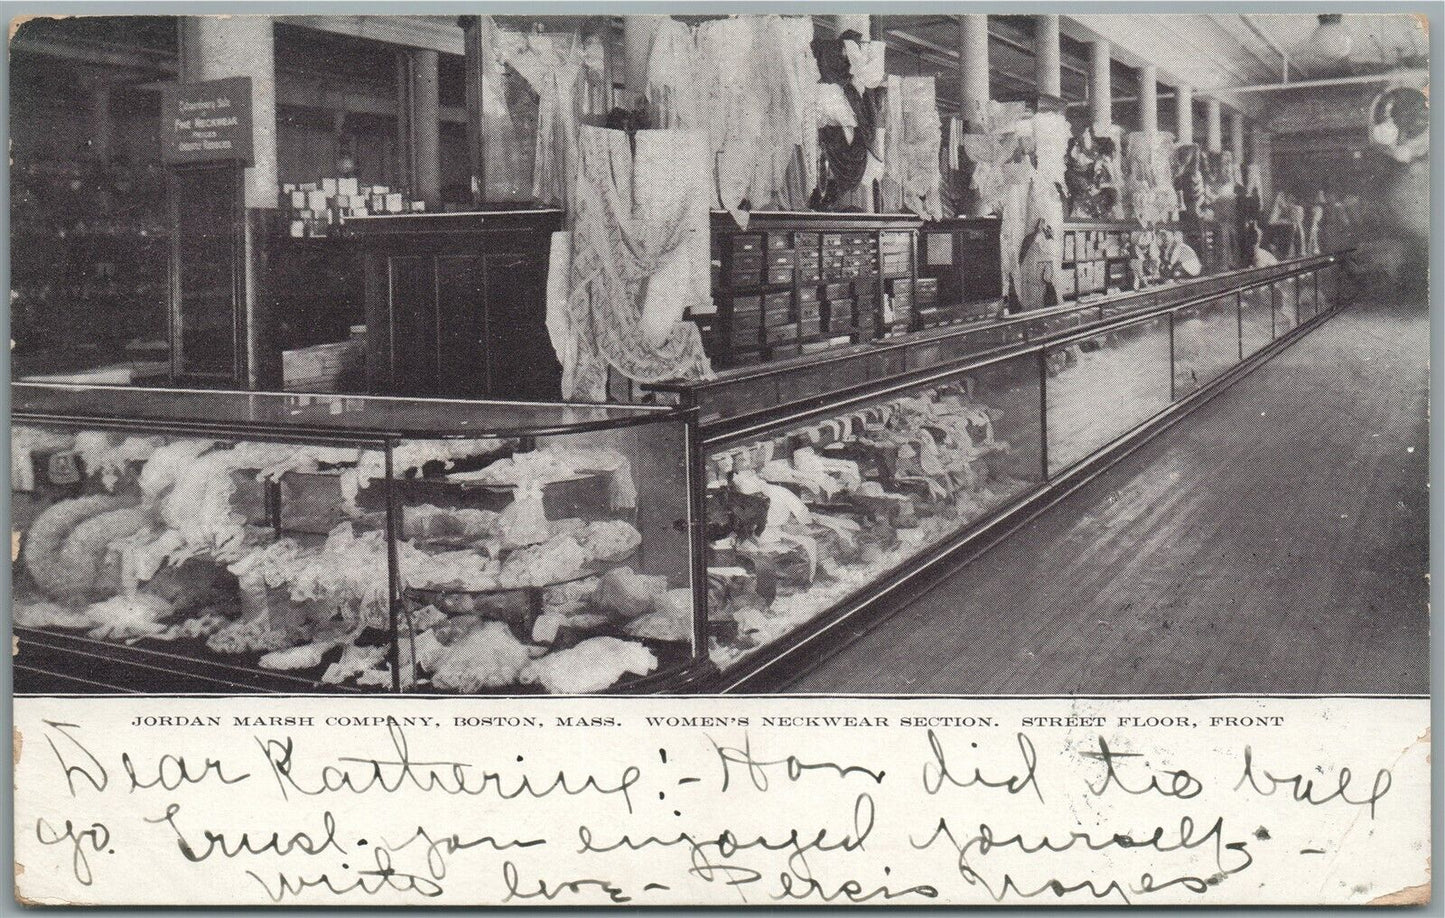 FINE NECKWEAR
PRICES
JORDAN MARSH COMPANY, BOSTON, MASS. WOMEN'S NECKWEAR SECTION. STREET FLOOR, FRONT
Dear Katherine!- How did the ball
go. Trust you enjoyed yourself -
write love - Persis Noyes